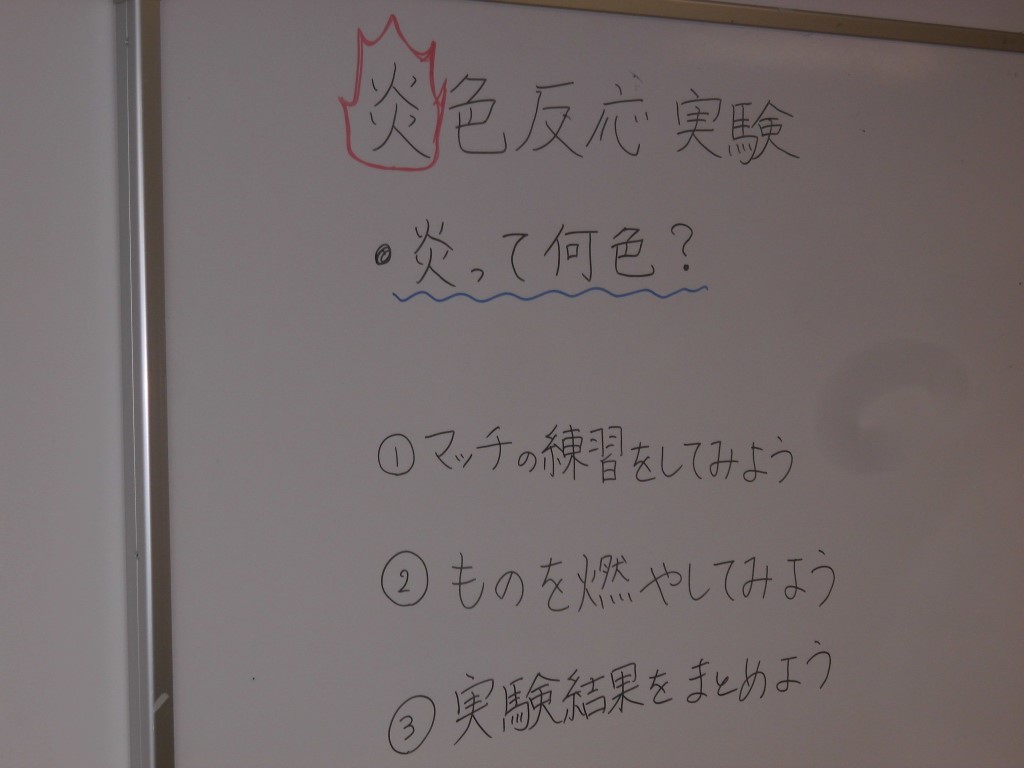 炎色反応実験
・炎って何色?
①マッチの練習をしてみよう
②ものを燃やしてみよう
③実験結果をまとめよう